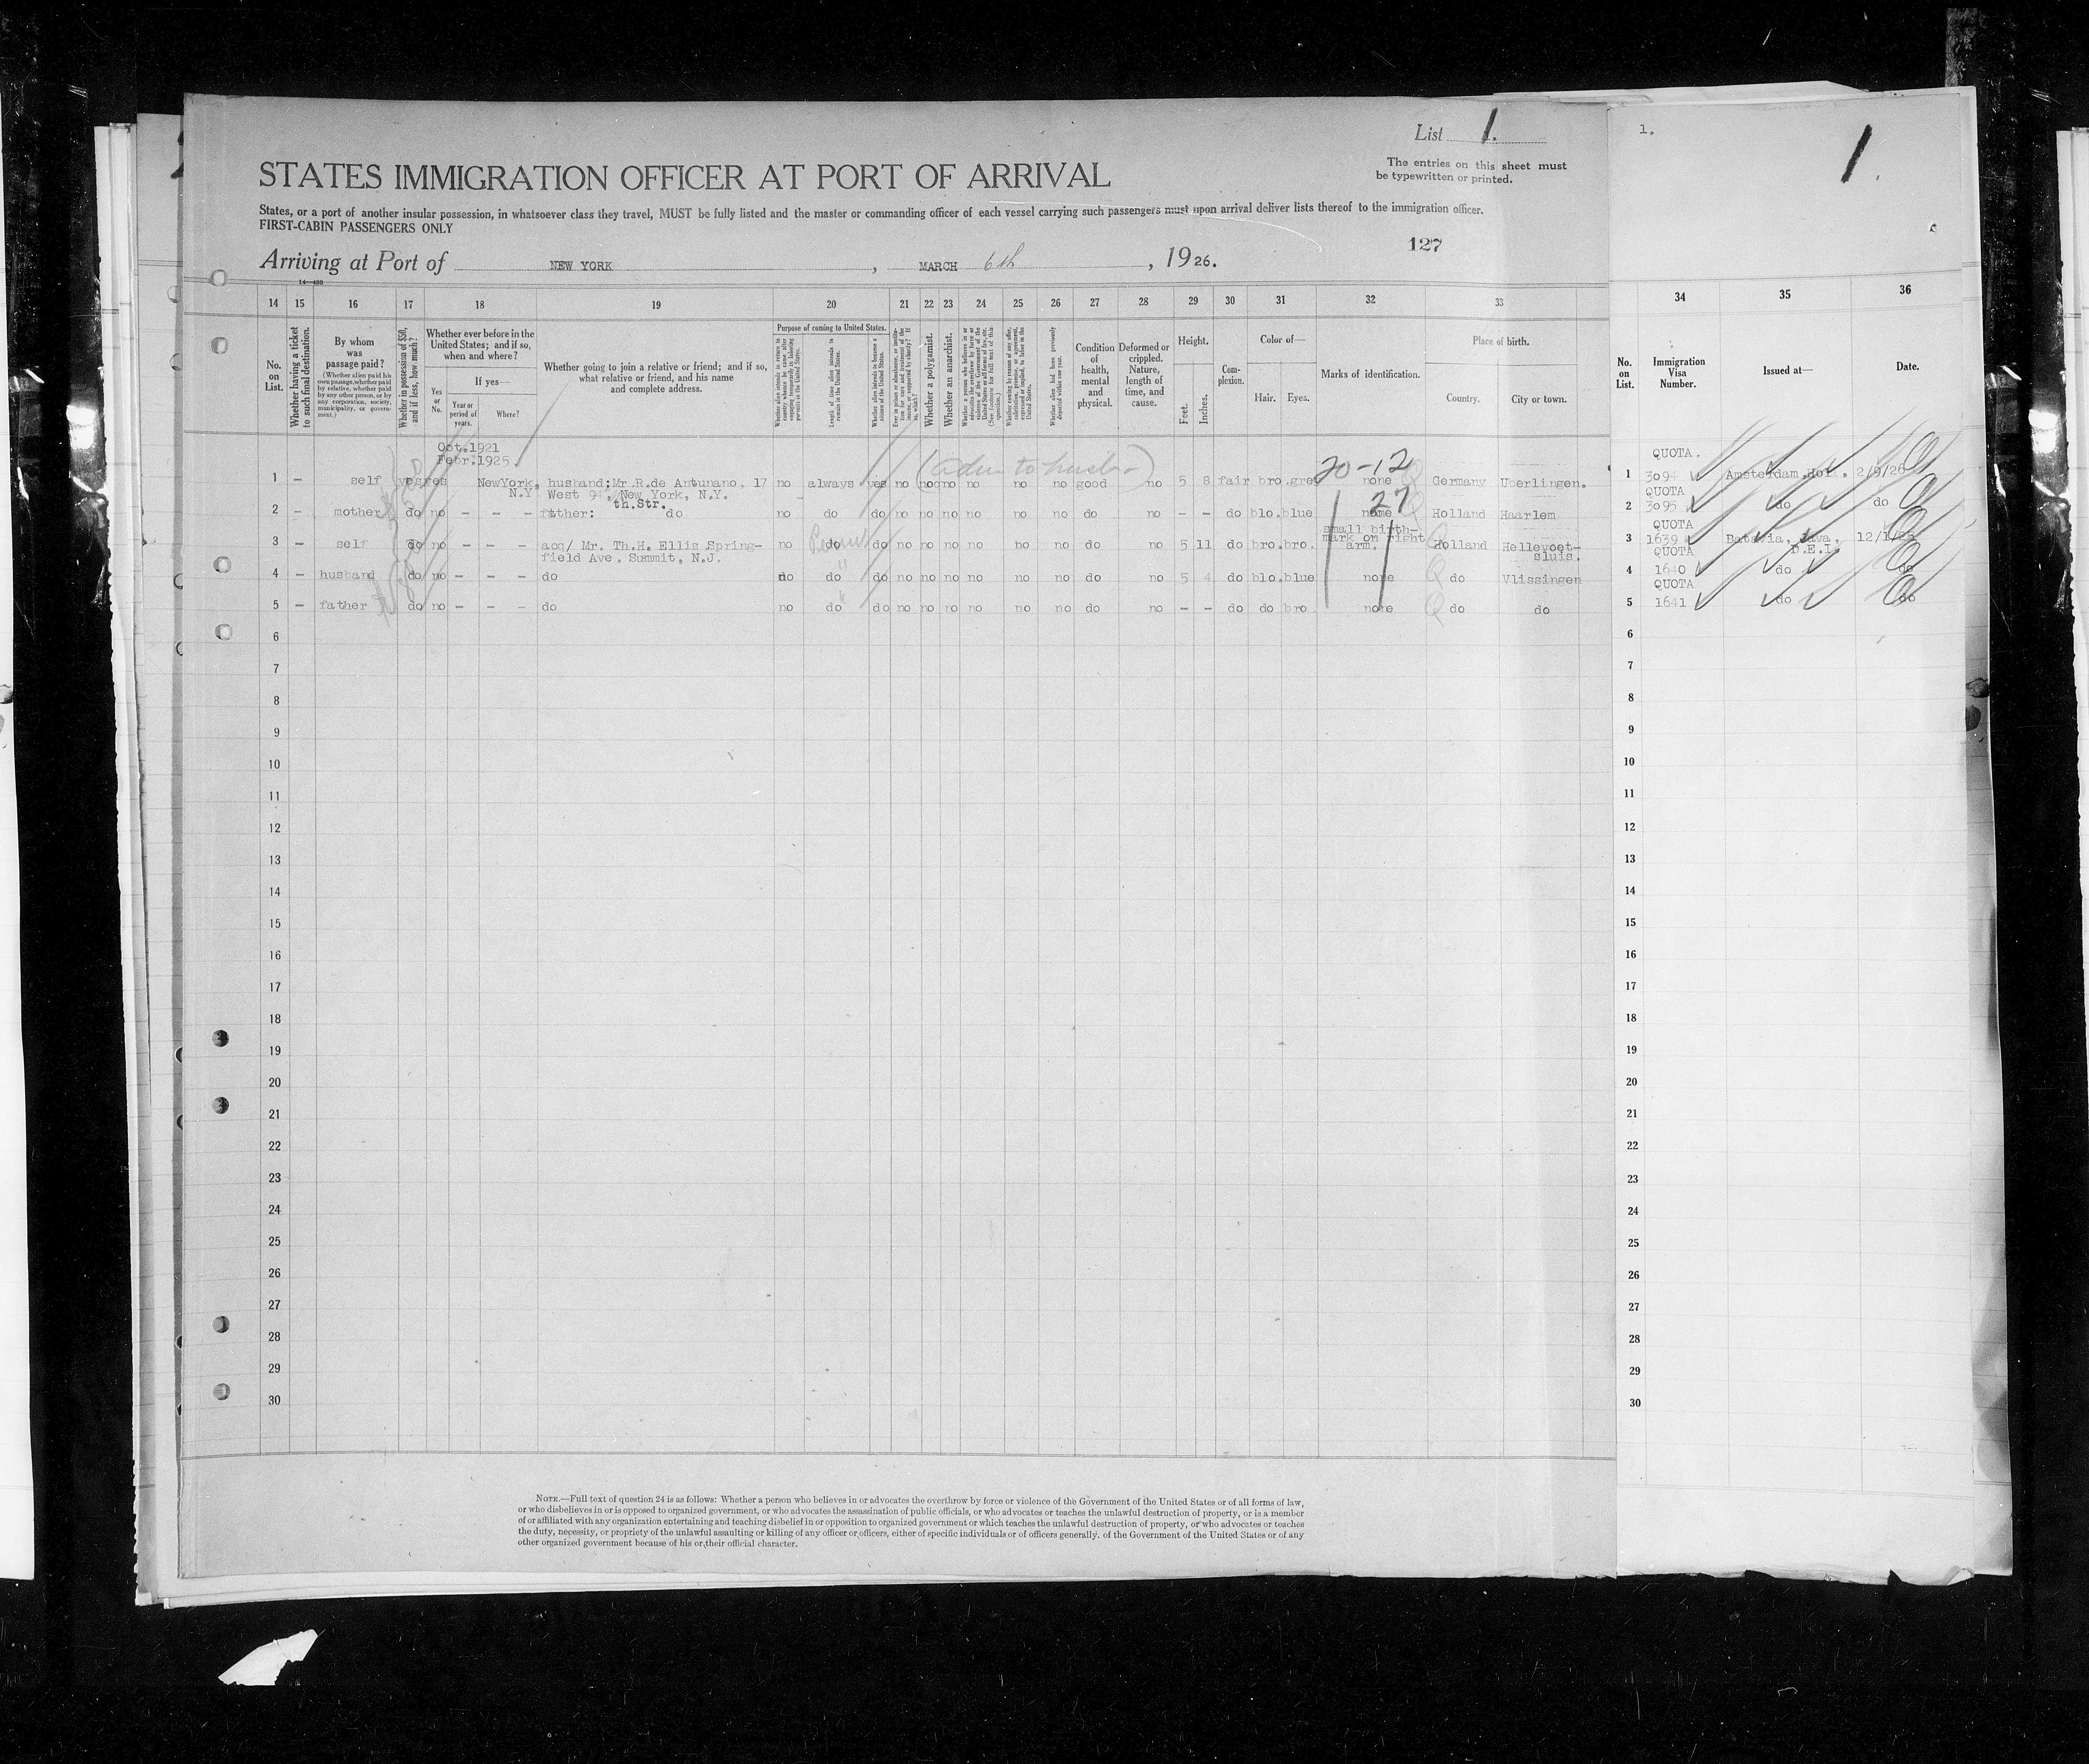 List 1.
1.
1.
The entries on this sheet must
be typewritten or printed.
STATES IMMIGRATION OFFICER AT PORT OF ARRIVAL
States, or a port of another insular possession, in whatsoever class they travel, MUST be fully listed and the master or commanding officer of each vessel carrying such passengers must upon arrival deliver lists thereof to the immigration officer.
FIRST-CABIN PASSENGERS ONLY
127
Arriving at Port of NEW YORK, MARCH 6th, 1926.
14 15 16 17 18 19 20 21 22 23 24 25 26 27 28 29 30 31 32 33 34 35 36
No. on List.
Whether having a ticket to such final destination.
By whom was passage paid?
(Whether alien paid his own passage, whether paid by relative, whether paid by any other person, or by any corporation, society, municipality, or government.)
Whether in possession of $50, and if less, how much?
Whether ever before in the United States; and if so, when and where?
Yes or No.
If yes—
Year or period of years.
Where?
Whether going to join a relative or friend; and if so, what relative or friend, and his name and complete address.
Purpose of coming to United States.
Length of time alien intends to remain in the United States.
Whether alien intends to become a citizen of the United States.
Whether a polygamist.
Whether an anarchist.
Condition of health, mental and physical.
Deformed or crippled. Nature, length of time, and cause.
Height.
Feet. Inches.
Complexion.
Color of—
Hair. Eyes.
Marks of identification.
Place of birth.
Country. City or town.
No. on List.
Immigration Visa Number.
Issued at—
Date.
Oct.1921
Febr.1925.
20-12
QUOTA.
1 – self yes yes NewYork, N.Y. husband;Mr.R.de Antunano, 17 no always yes no no no no no no good no 5 8 fair bro.gre none Germany Uberlingen. 1 3094 Amsterdam.Hol. 2/9/26
West 94, New York, N.Y.
th.Str.
27
QUOTA
2 – mother do no – – – father: do no do do no no no no no no do no – – do blo.blue none Holland Haarlem 2 3095 do do
small birth-
mark on right
arm.
QUOTA
3 – self do no – – – acq/ Mr. Th.H. Ellis Spring- no do do no no no no no no do no 5 11 do bro.bro. Holland Hellevoet- 3 1639 Batavia, Java,
field Ave. Summit, N.J.
sluis.
D.E.I.
QUOTA
4 – husband do no – – – do no do do no no no no no no do no 5 4 do blo.blue none do Vlissingen 4 1640 do do
QUOTA
5 – father do no – – – do no do do no no no no no no do no – – do do bro. none do do 5 1641 do do
6 6
7 7
8 8
9 9
10 10
11 11
12 12
13 13
14 14
15 15
16 16
17 17
18 18
19 19
20 20
21 21
22 22
23 23
24 24
25 25
26 26
27 27
28 28
29 29
30 30
NOTE.—Full text of question 24 is as follows: Whether a person who believes in or advocates the overthrow by force or violence of the Government of the United States or of all forms of law,
or who disbelieves in or is opposed to organized government, or who advocates the assassination of public officials, or who advocates or teaches the unlawful destruction of property, or is a member
of or affiliated with any organization entertaining and teaching disbelief in or opposition to organized government or which teaches the unlawful destruction of property, or who advocates or teaches
the duty, necessity, or propriety of the unlawful assaulting or killing of any officer or officers, either of specific individuals or of officers generally. of the Government of the United States or of any
other organized government because of his or their official character.